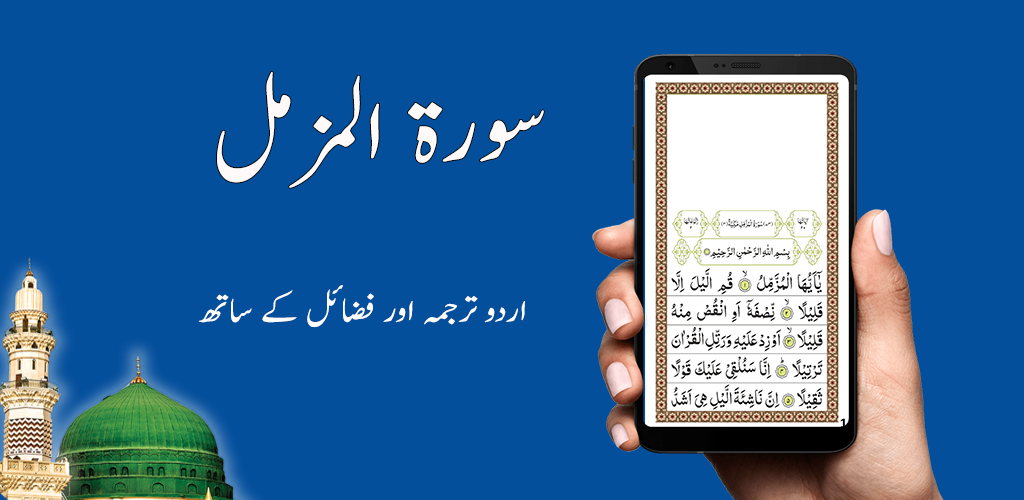 سورۃ المزمل
اردو ترجمہ اور فضائل کے ساتھ
1
بِسْمِ اللهِ الرَّحْمٰنِ الرَّحِيْمِ
يٰۤاَيُّهَا الْمُزَّمِّلُ ۙ۱ قُمِ الَّيْلَ اِلَّا
قَلِيْلًا ۙ۲ نِّصْفَهٗۤ اَوِ انْقُصْ مِنْهُ
قَلِيْلًا ۙ۳ اَوْ زِدْ عَلَيْهِ وَرَتِّلِ الْقُرْاٰنَ
تَرْتِيْلًا ؕ۴ اِنَّا سَنُلْقِيْ عَلَيْكَ قَوْلًا
ثَقِيْلًا ۵ اِنَّ نَاشِئَةَ الَّيْلِ هِيَ اَشَدُّ